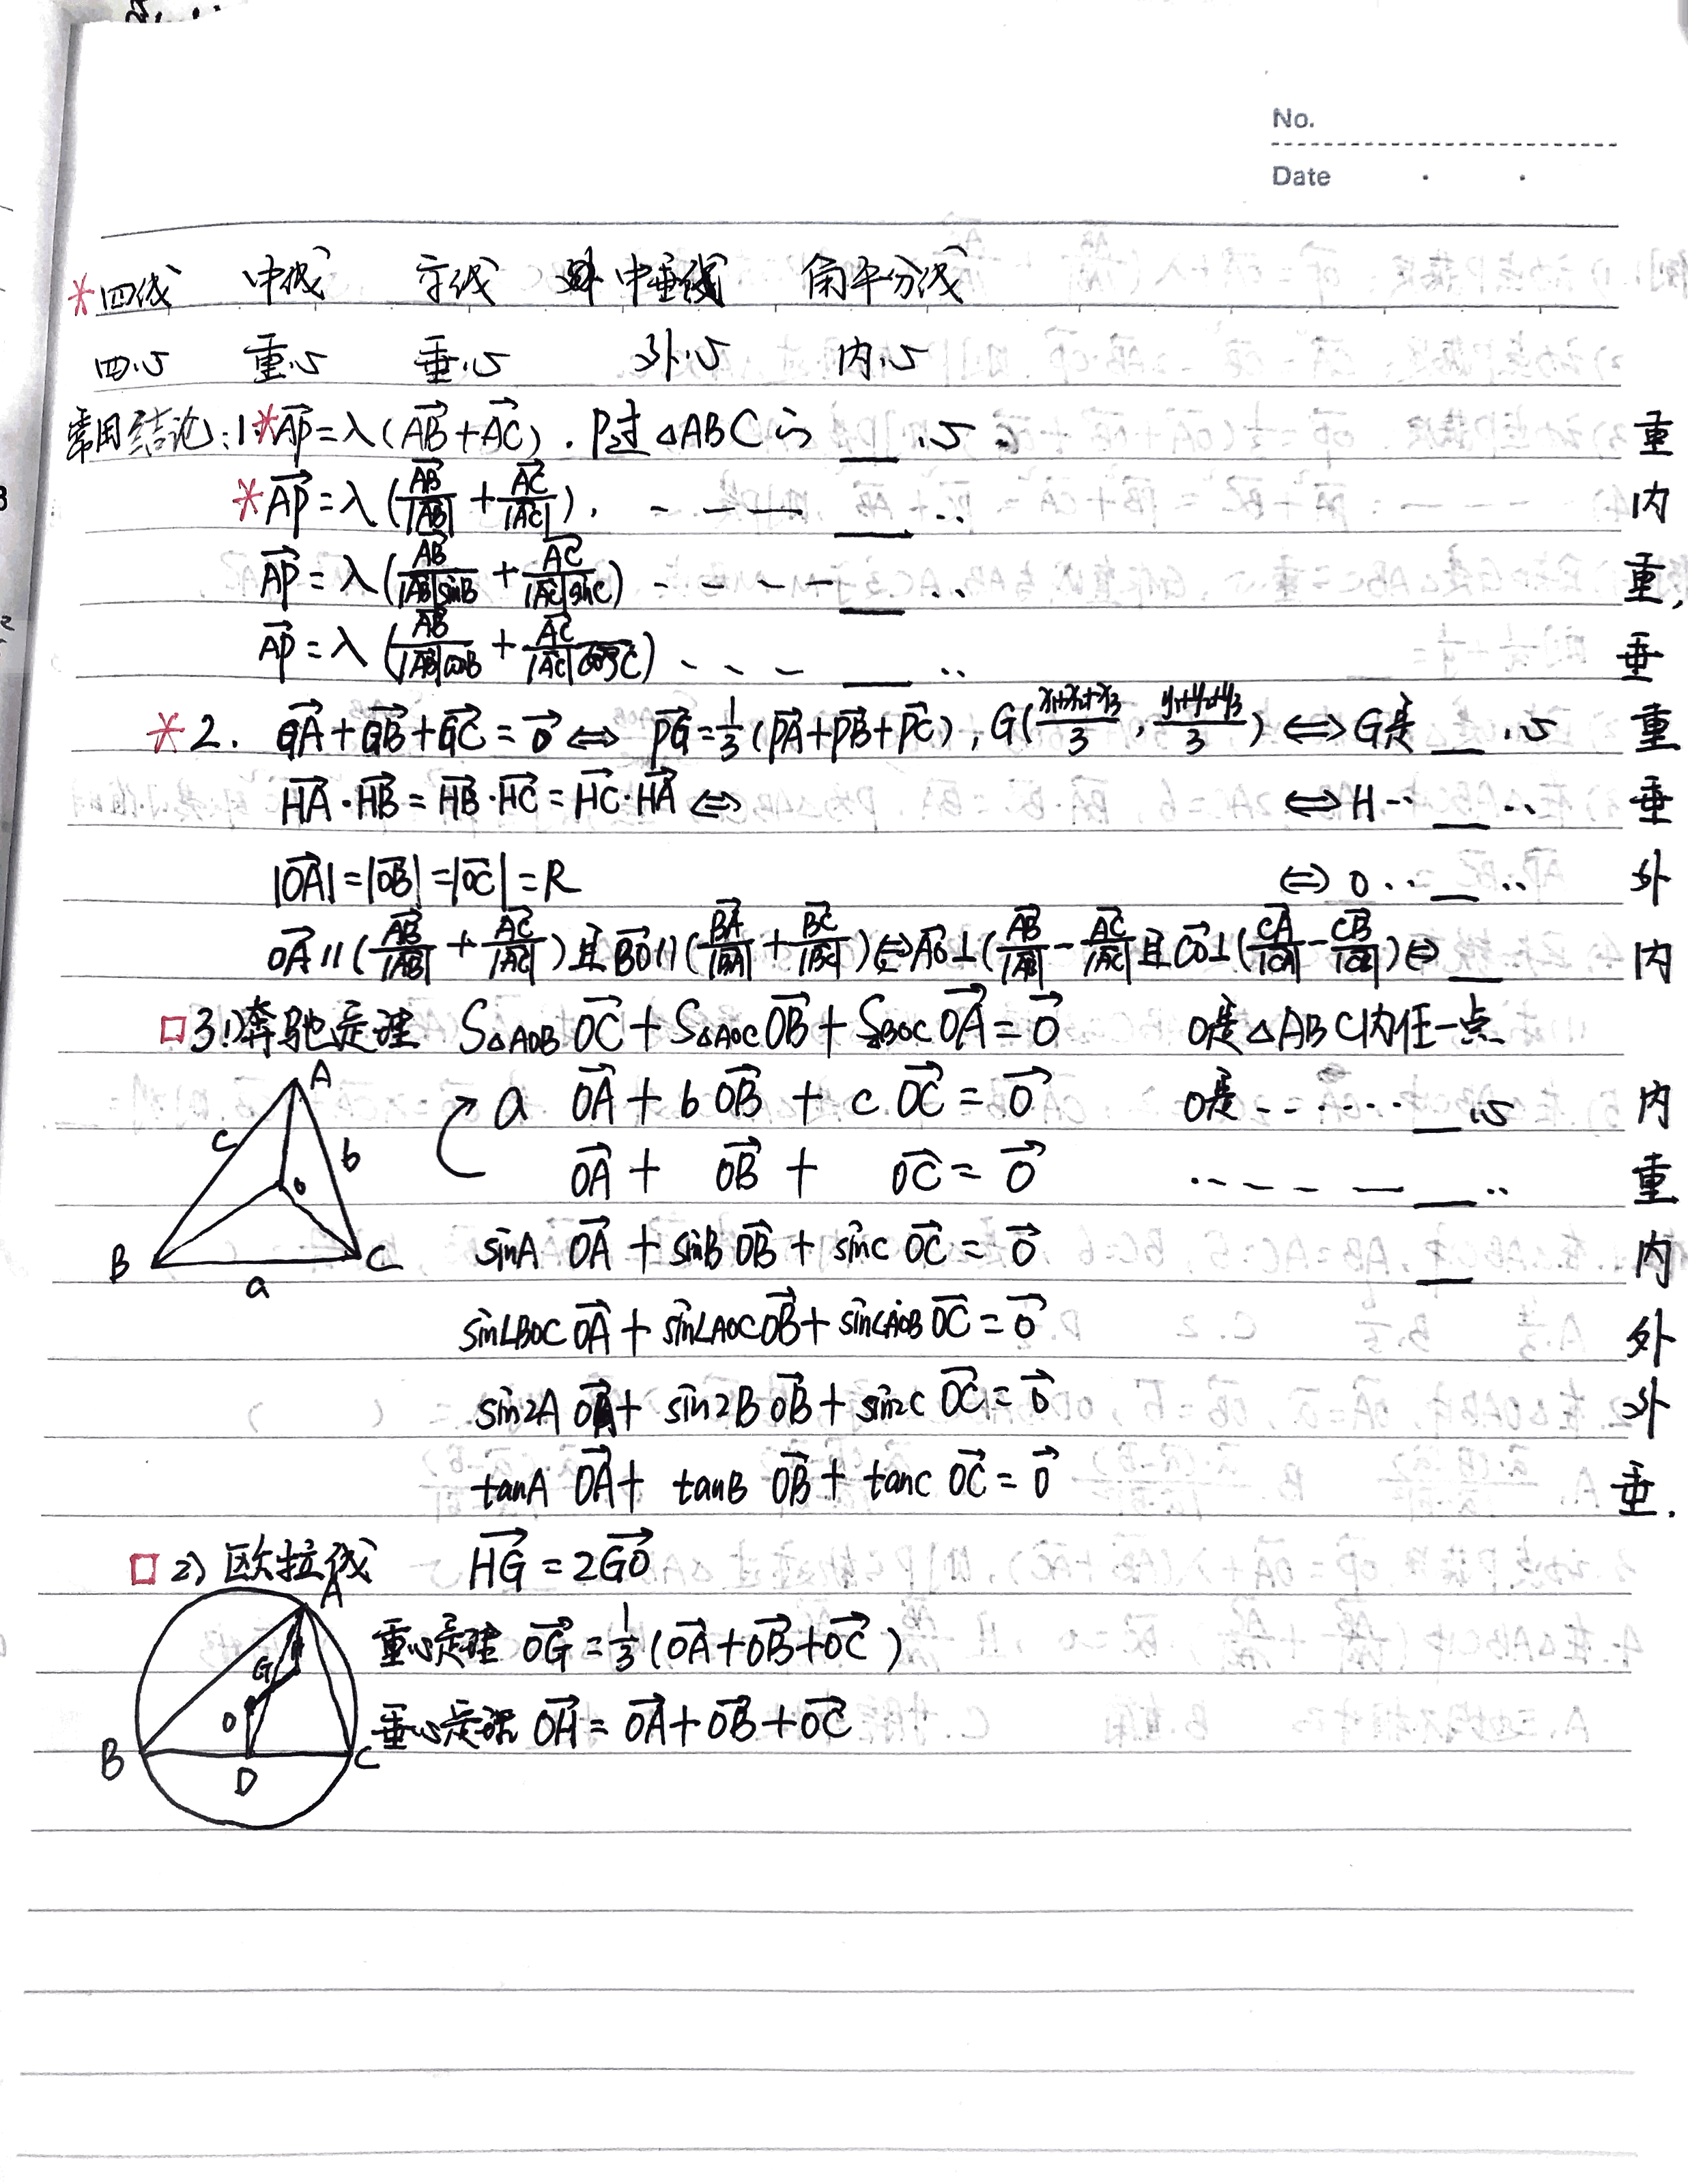 No.
Date
*四线 中线 高线 中垂线 角平分线
四心 重心 垂心 外心 内心
常用结论：1.*AP→=λ(AB→+AC→). P过△ABC的 __ 心. 重
*AP→=λ(AB→/|AB→|+AC→/|AC→|). - - — __ .. 内
AP→=λ(AB→/|AB→|sinB+AC→/|AC→|sinC) - - - - __ .. 重,
AP→=λ(AB→/|AB→|cosB+AC→/|AC→|cosC) - - - __ .. 垂
*2. GA→+GB→+GC→=0→⇔PG→=1/3(PA→+PB→+PC→), G(x1+x2+x3/3, y1+y2+y3/3)⇔G是 __ 心 重
HA→·HB→=HB→·HC→=HC→·HA→⇔ ⇔H-- __ .. 垂
|OA→|=|OB→|=|OC→|=R ⇔O.. __ .. 外
OA→∥(AB→/|AB→|+AC→/|AC→|)且BO→∥(BA→/|BA→|+BC→/|BC→|)⇔AO→⊥(AB→/|AB→|-AC→/|AC→|且CO→⊥(CA→/|CA→|-CB→/|CB→|)⇔ __ 内
□3.1)奔驰定理 S△AOB OC→+S△AOC OB→+S△BOC OA→=0→ O是△ABC内任一点
a OA→+b OB→+c OC→=0→ O是------ __ 心 内
OA→+OB→+OC→=0→ ..- - - — __ .. 重
sinA OA→+sinB OB→+sinC OC→=0→ __ 内
sin∠BOC OA→+sin∠AOC OB→+sin∠AOB OC→=0→ 外
sin2A OA→+sin2B OB→+sin2C OC→=0→ 外
tanA OA→+tanB OB→+tanC OC→=0→ 垂.
A
c
b
O
B
C
a
□2) 欧拉线 HG→=2GO→
重心定理 OG→=1/3(OA→+OB→+OC→)
垂心定理 OH→=OA→+OB→+OC→
A
G
O
B
D
C